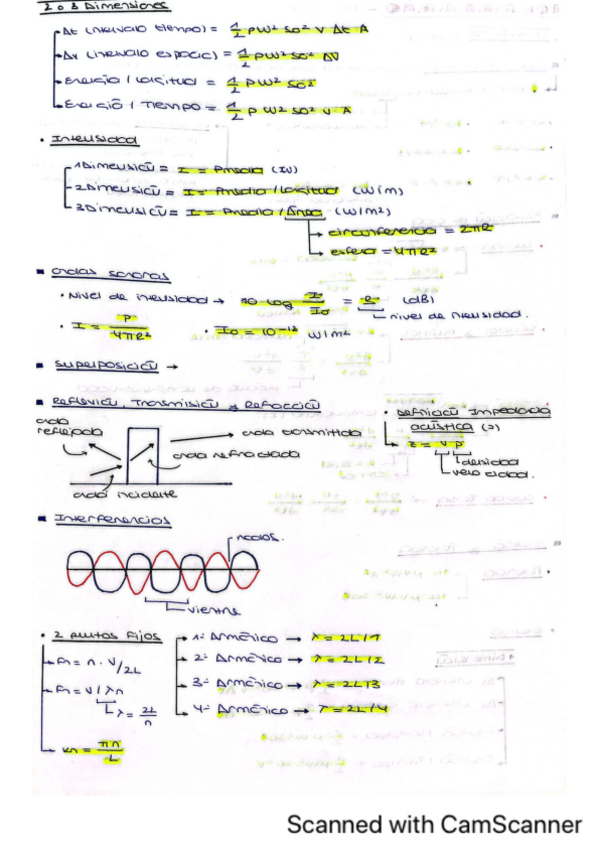 2 o 3 Dimensiones
Δt (intervalo tiempo) = 1/2 ρ w² so² v Δt A
Δv (intervalo espacio) = 1/2 ρ w² so² ΔV
Energía / Longitud = 1/2 ρ w² so²
Energía / Tiempo = 1/2 ρ w² so² v A
• Intensidad
1 Dimensión = I = Pmedia (W)
2 Dimensión = I = Pmedia / Longitud (W/m)
3 Dimensión = I = Pmedia / Área (W/m²)
circunferencia = 2πR
esfera = 4πR²
▪ ondas sonoras
• Nivel de intensidad → 10 log I/Io = (dB)
nivel de intensidad.
• I = P/4πR² • Io = 10⁻¹² W/m²
▪ Superposición →
▪ Reflexión, Transmisión y Refracción
onda reflejada
onda transmitida
onda refractada
onda incidente
• Definición Impedancia acústica (z)
z = v ρ
densidad
velocidad.
▪ Interferencias
nodos.
vientre
• 2 puntos Fijos
fn = n · v/2L
fn = v / λn
λ = 2L/n
kn = πn/L
1º Armónico → λ = 2L/1
2º Armónico → λ = 2L/2
3º Armónico → λ = 2L/3
4º Armónico → λ = 2L/4
Scanned with CamScanner